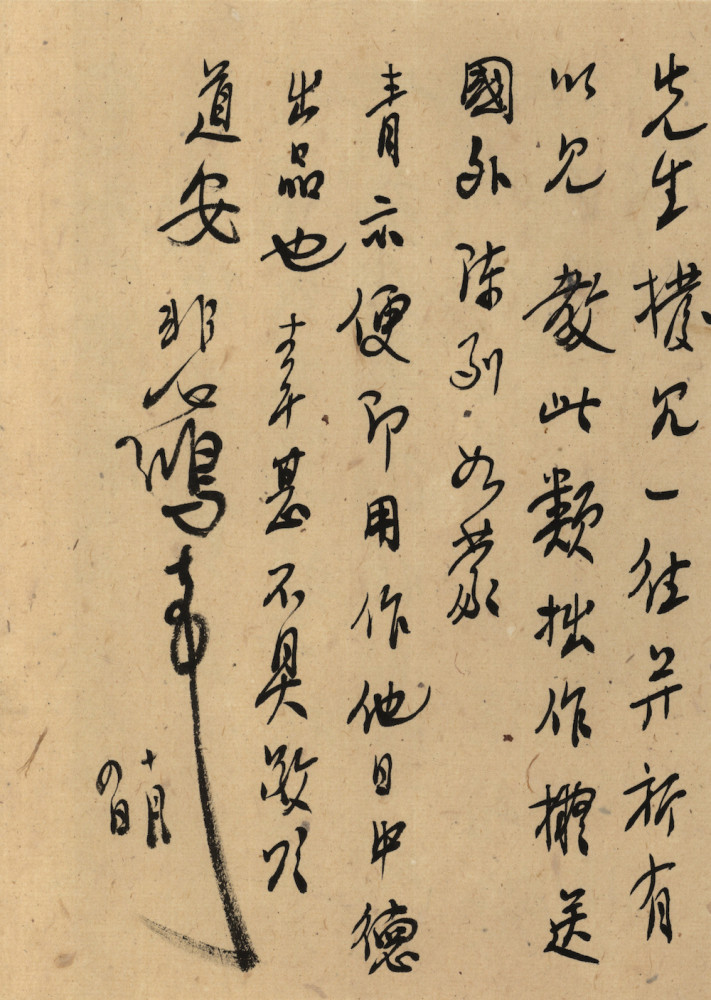 先生撥冗一往并祈有
以見教此類拙作擬送
國外陳列如蒙
青示便即用作他日中德
出品也幸甚不具敬頌
道安 悲鴻
十月
四日